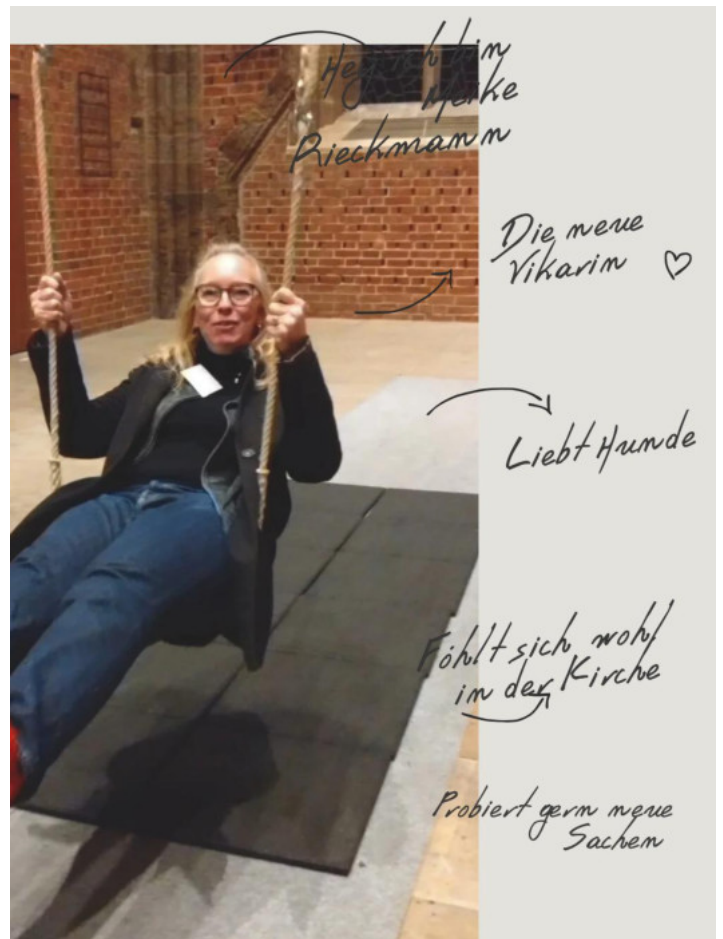 Hey, ich bin
Meike
Rieckmann
Die neue
Vikarin ♡
Liebt Hunde
Föhlt sich wohl
in der Kirche
Probiert gern neue
Sachen